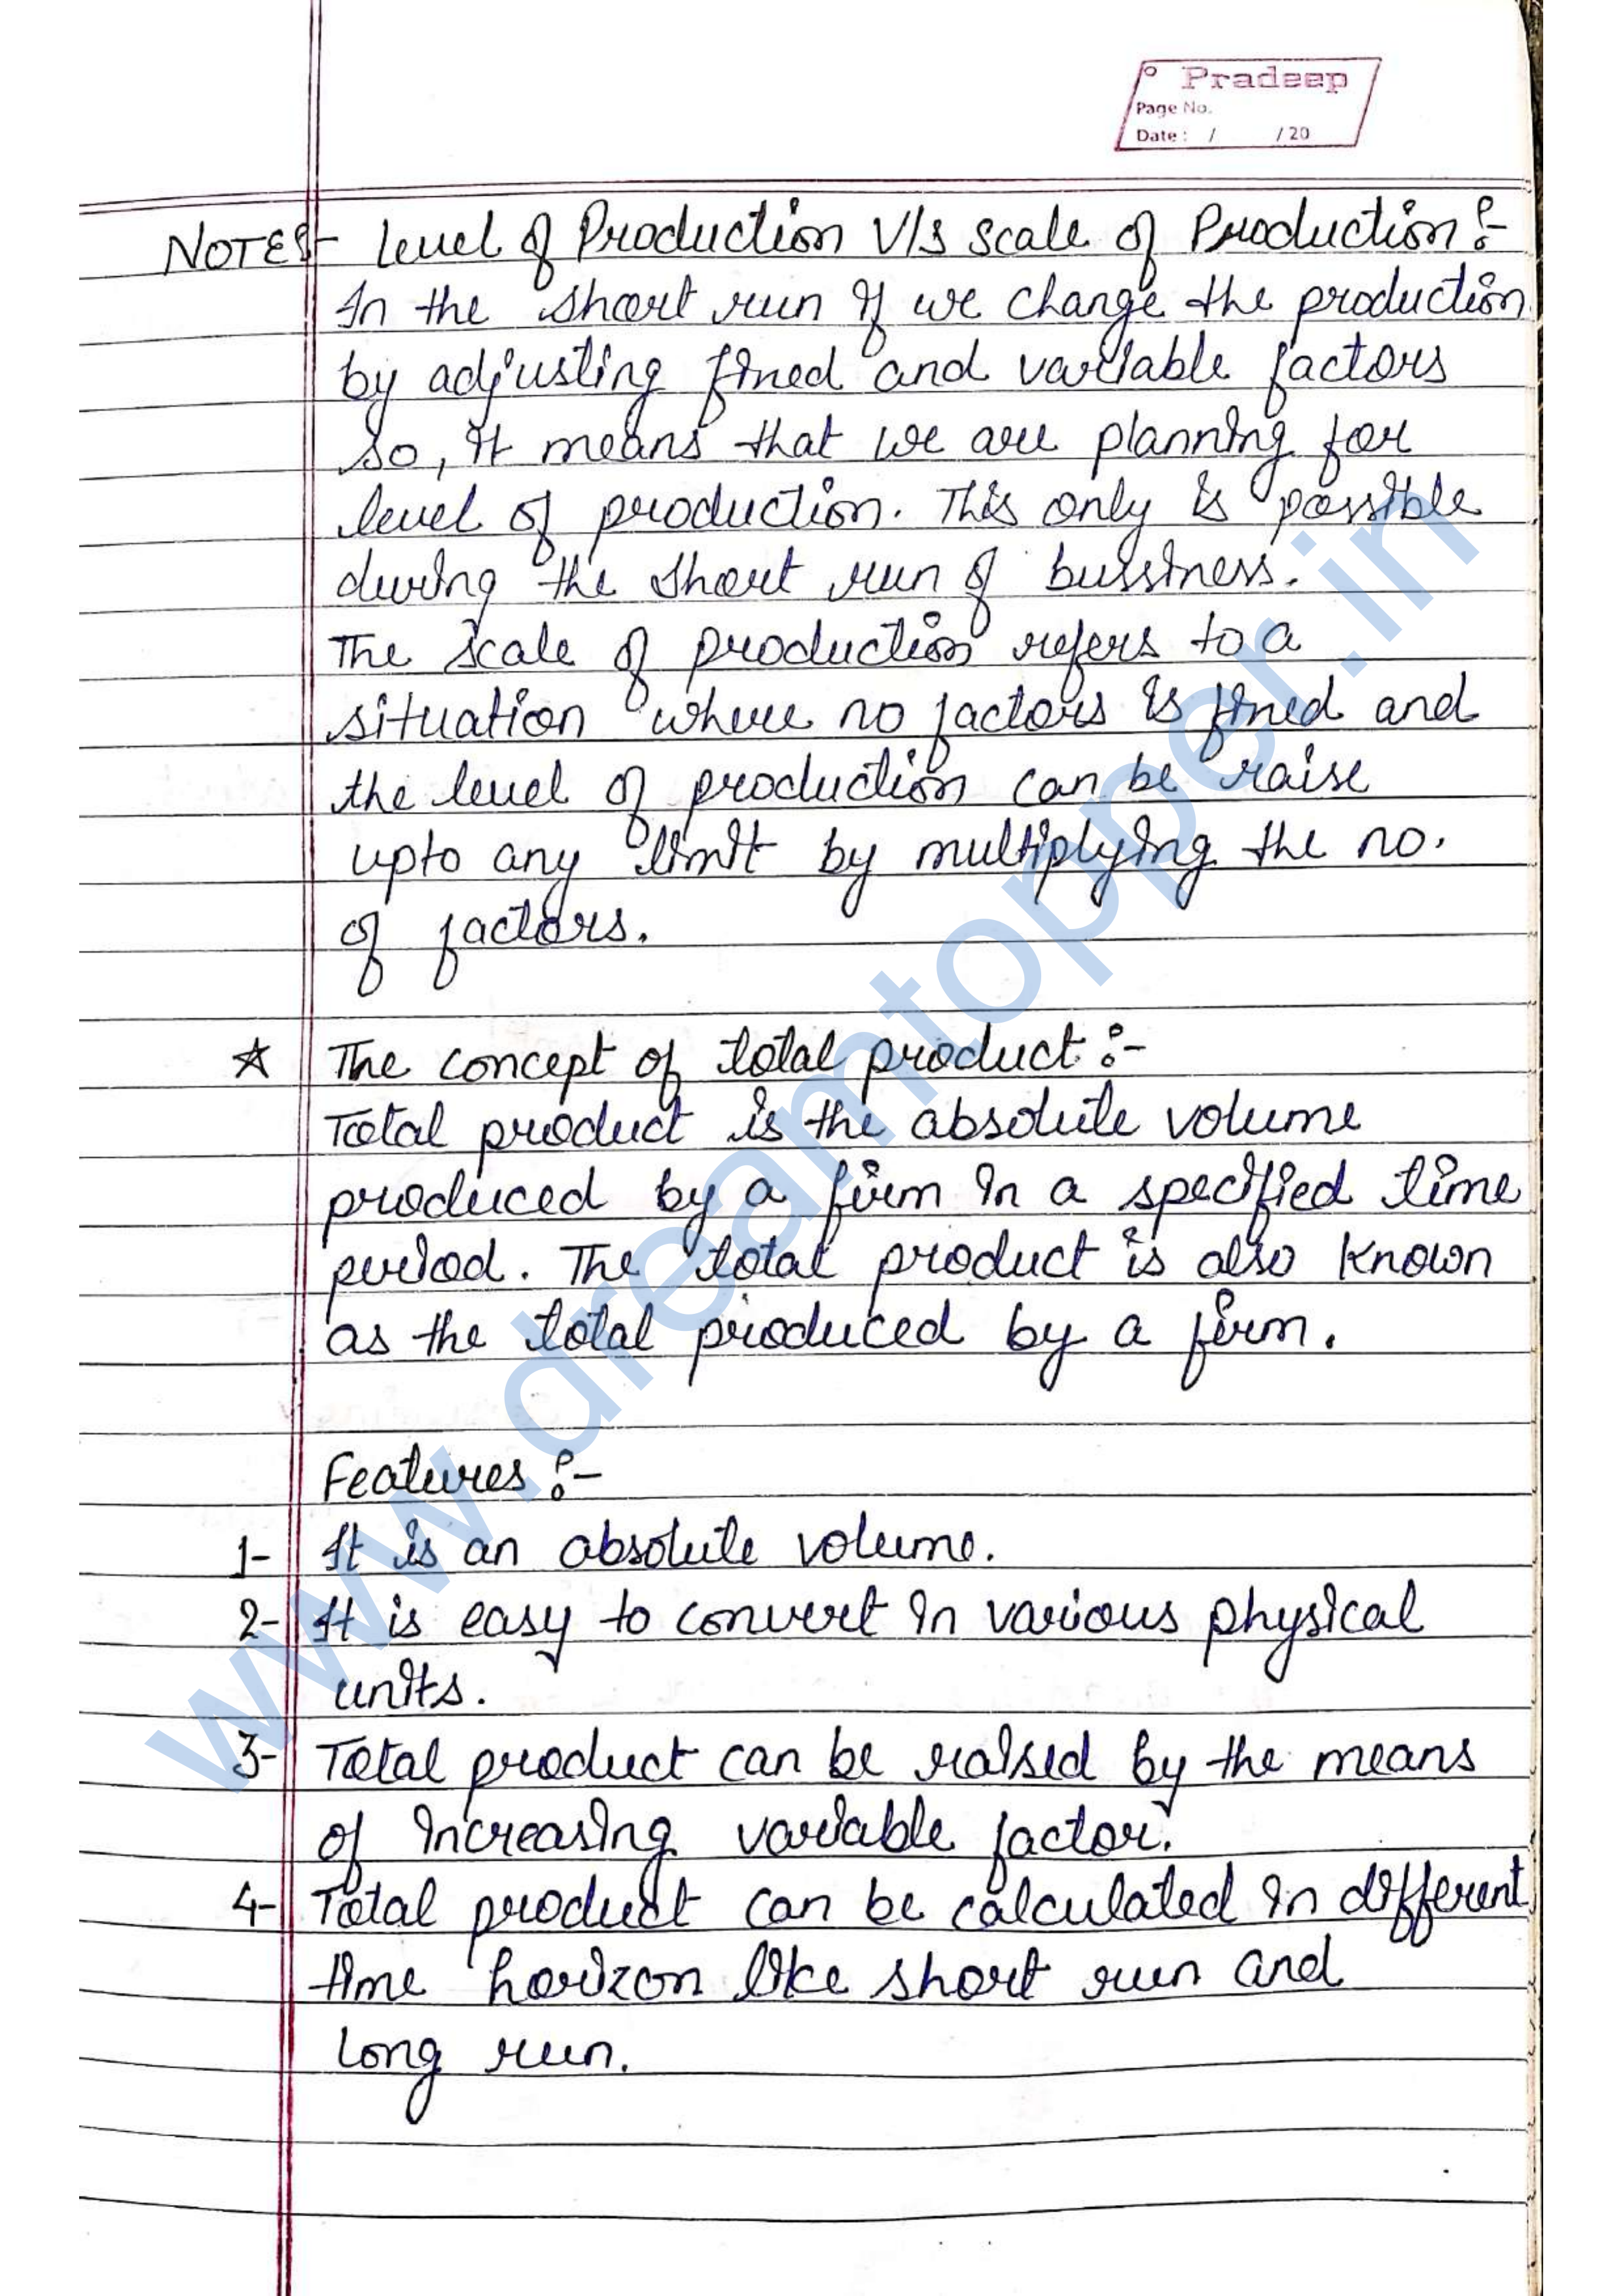 Pradeep
Page No.
Date : / / 20
NOTES- level of Production V/s scale of Production :-
In the short run if we change the production
by adjusting fined and variable factors
so, it means that we are planning for
level of production. This only is possible
during the short run of bussiness.
The scale of production refers to a
situation where no factors is fined and
the level of production can be raise
upto any limit by multiplying the no.
of factors.
☆ The concept of total product :-
Total product is the absolute volume
produced by a firm in a specified time
period. The total product is also known
as the total produced by a firm.
Features :-
1- It is an absolute volume.
2- It is easy to convert in various physical
units.
3- Total product can be raised by the means
of increasing variable factor.
4- Total product can be calculated in different
time horizon like short run and
long run.
www.dreamtopper.in